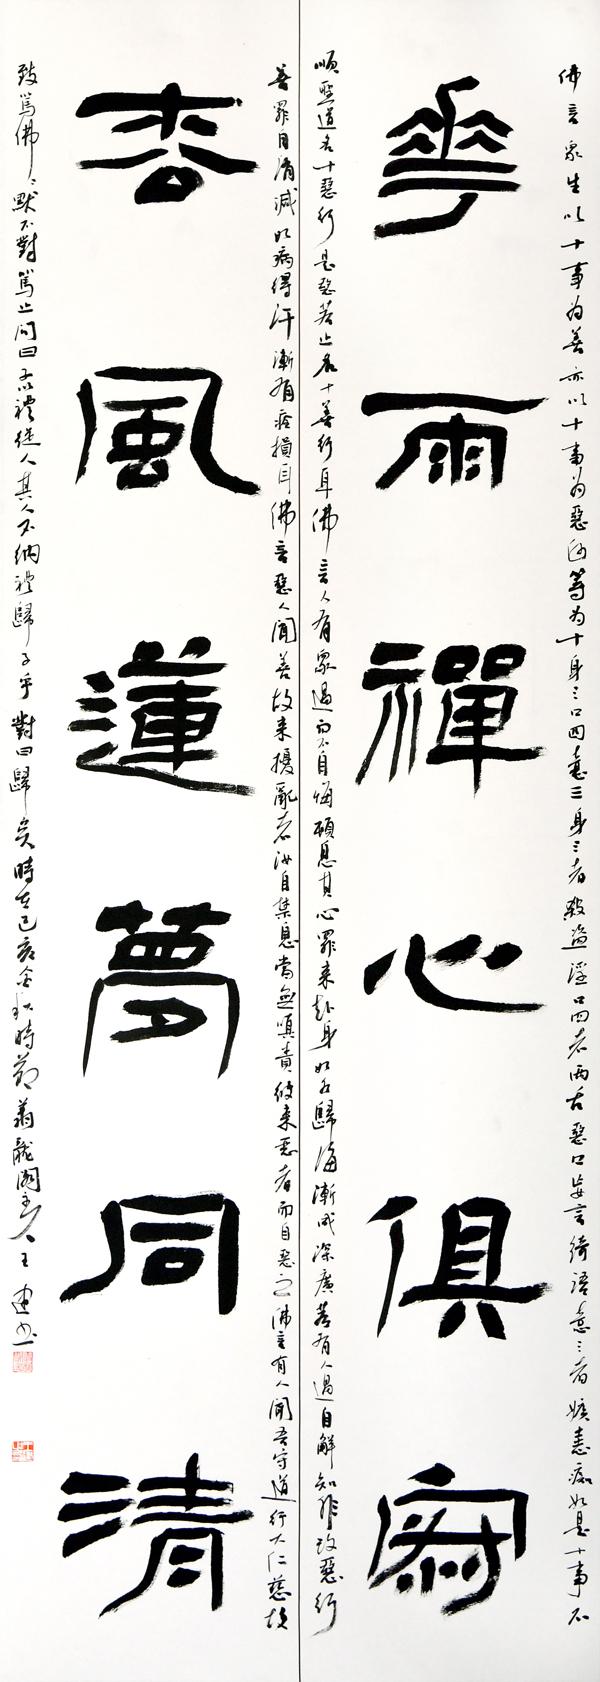 佛言眾生以十事為善亦以十事為惡何等為十身三口四意三身三者殺盜淫口四者兩舌惡口妄言綺語意三者嫉恚癡如是十事不
華雨禪心俱寂
順聖道名十惡行是惡若止名十善行耳佛言人有眾過而不自悔頓息其心罪來赴身如水歸海漸成深廣若有人過自解知非改惡行
善罪自消滅如病得汗漸有痊損耳佛言惡人聞善故來擾亂者汝自禁息當無嗔責彼來惡者而自惡之佛言有人聞吾守道行大仁慈故
香風蓮夢同清
致罵佛〻默不對罵止問曰子以禮從人其人不納禮歸子乎對曰歸矣時在己亥金秋時節龍閣主人王建書